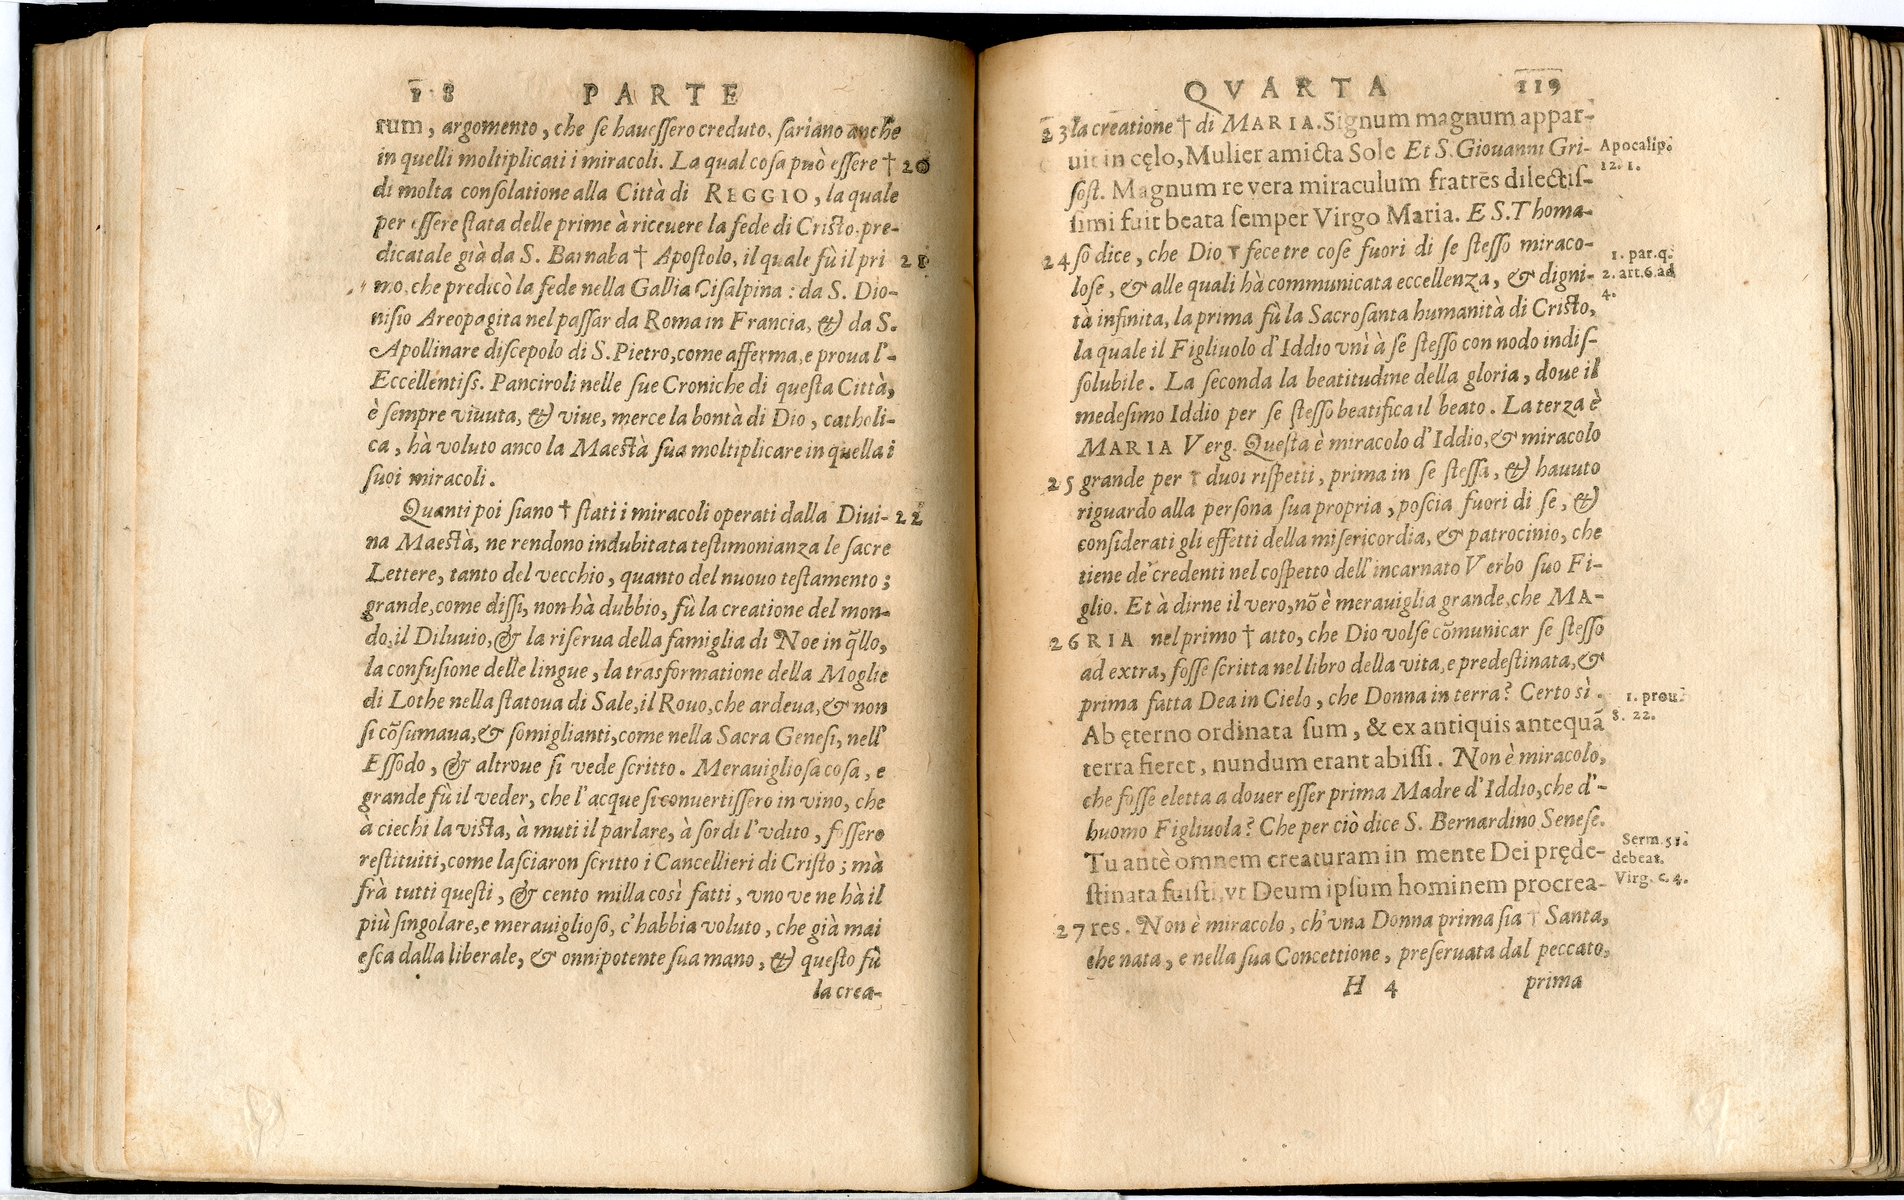 1 8 PARTE
rum, argomento, che se hauessero creduto, sariano anche
in quelli moltiplicati i miracoli. La qual cosa può essere † 20
di molta consolatione alla Città di REGGIO, la quale
per essere stata delle prime à riceuere la fede di Cristo, pre-
dicatale già da S. Barnaba † Apostolo, il quale fù il pri 21
mo, che predicò la fede nella Gallia Cisalpina: da S. Dio-
nisio Areopagita nel passar da Roma in Francia, & da S.
Apollinare discepolo di S. Pietro, come afferma, e proua l'-
Eccellentiss. Panciroli nelle sue Croniche di questa Città,
è sempre viuuta, & viue, merce la bontà di Dio, catholi-
ca, hà voluto anco la Maestà sua moltiplicare in quella i
suoi miracoli.
Quanti poi siano † stati i miracoli operati dalla Diui- 22
na Maestà, ne rendono indubitata testimonianza le sacre
Lettere, tanto del vecchio, quanto del nuouo testamento;
grande, come dissi, non hà dubbio, fù la creatione del mon-
do, il Diluuio, & la riserua della famiglia di Noe in q̃llo,
la confusione delle lingue, la trasformatione della Moglie
di Lothe nella statoua di Sale, il Rouo, che ardeua, & non
si cõsumaua, & somiglianti, come nella Sacra Genesi, nell'
Essodo, & altroue si vede scritto. Merauigliosa cosa, e
grande fù il veder, che l'acque si conuertissero in vino, che
à ciechi la vista, à muti il parlare, à sordi l'vdito, fossero
restituiti, come lasciaron scritto i Cancellieri di Cristo; mà
frà tutti questi, & cento milla così fatti, vno ve ne hà il
più singolare, e merauiglioso, c'habbia voluto, che già mai
esca dalla liberale, & onnipotente sua mano, & questo fù
la crea-
QVARTA 119
23 la creatione † di MARIA. Signum magnum appar-
uit in cęlo, Mulier amicta Sole Et S. Giouanni Gri-
Apocalip.
12. 1.
sost. Magnum re vera miraculum fratrēs dilectis-
simi fuit beata semper Virgo Maria. E S. Thoma-
24 so dice, che Dio † fece tre cose fuori di se stesso miraco-
1. par. q.
2. art. 6. ad
4.
lose, & alle quali hà communicata eccellenza, & digni-
tà infinita, la prima fù la Sacrosanta humanità di Cristo,
la quale il Figliuolo d'Iddio vnì à se stesso con nodo indis-
solubile. La seconda la beatitudine della gloria, doue il
medesimo Iddio per se stesso beatifica il beato. La terza è
MARIA Verg. Questa è miracolo d'Iddio, & miracolo
25 grande per † duoi rispetti, prima in se stessa, & hauuto
riguardo alla persona sua propria, poscia fuori di se, &
considerati gli effetti della misericordia, & patrocinio, che
tiene de' credenti nel cospetto dell'incarnato Verbo suo Fi-
glio. Et à dirne il vero, nõ è merauiglia grande, che MA-
26 RIA nel primo † atto, che Dio volse cõmunicar se stesso
ad extra, fosse scritta nel libro della vita, e predestinata, &
prima fatta Dea in Cielo, che Donna in terra? Certo sì.
1. prou.
8. 22.
Ab ęterno ordinata sum, & ex antiquis antequã
terra fieret, nundum erant abissi. Non è miracolo,
che fosse eletta a douer esser prima Madre d'Iddio, che d'-
huomo Figliuola? Che per ciò dice S. Bernardino Senese.
Serm. 51.
debeat.
Virg. c. 4.
Tu antè omnem creaturam in mente Dei pręde-
stinata fuisti, vt Deum ipsum hominem procrea-
27 res. Non è miracolo, ch'vna Donna prima sia † Santa,
che nata, e nella sua Concettione, preseruata dal peccato,
H 4 prima